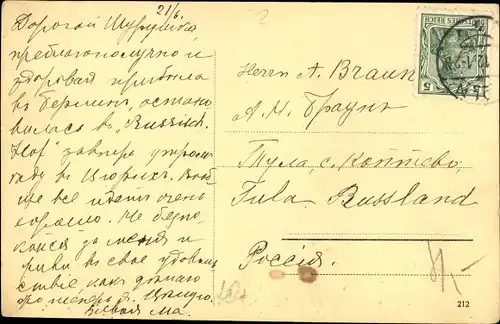 21/6.
2
Дорогой Шурушка,
преблагополучно и
здоровая прибыла
въ Берлинъ, остано
вилась въ "Russisch.
Hof" завтра утромъ
еду въ Цюрихъ. Вооб
ще все идетъ очень
хорошо. Не безпо-
койся за меня и
живи въ свое удоволь
ствіе, какъ думаю
теперь я. Цѣлую.
твоя Ма.
Herrn A. Braun
А. И. Браунъ
Тула, с. Коптево,
Tula Russland
Россія.
DEUTSCHES REICH
5
212